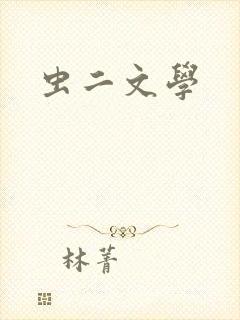 虫二文學
林菁